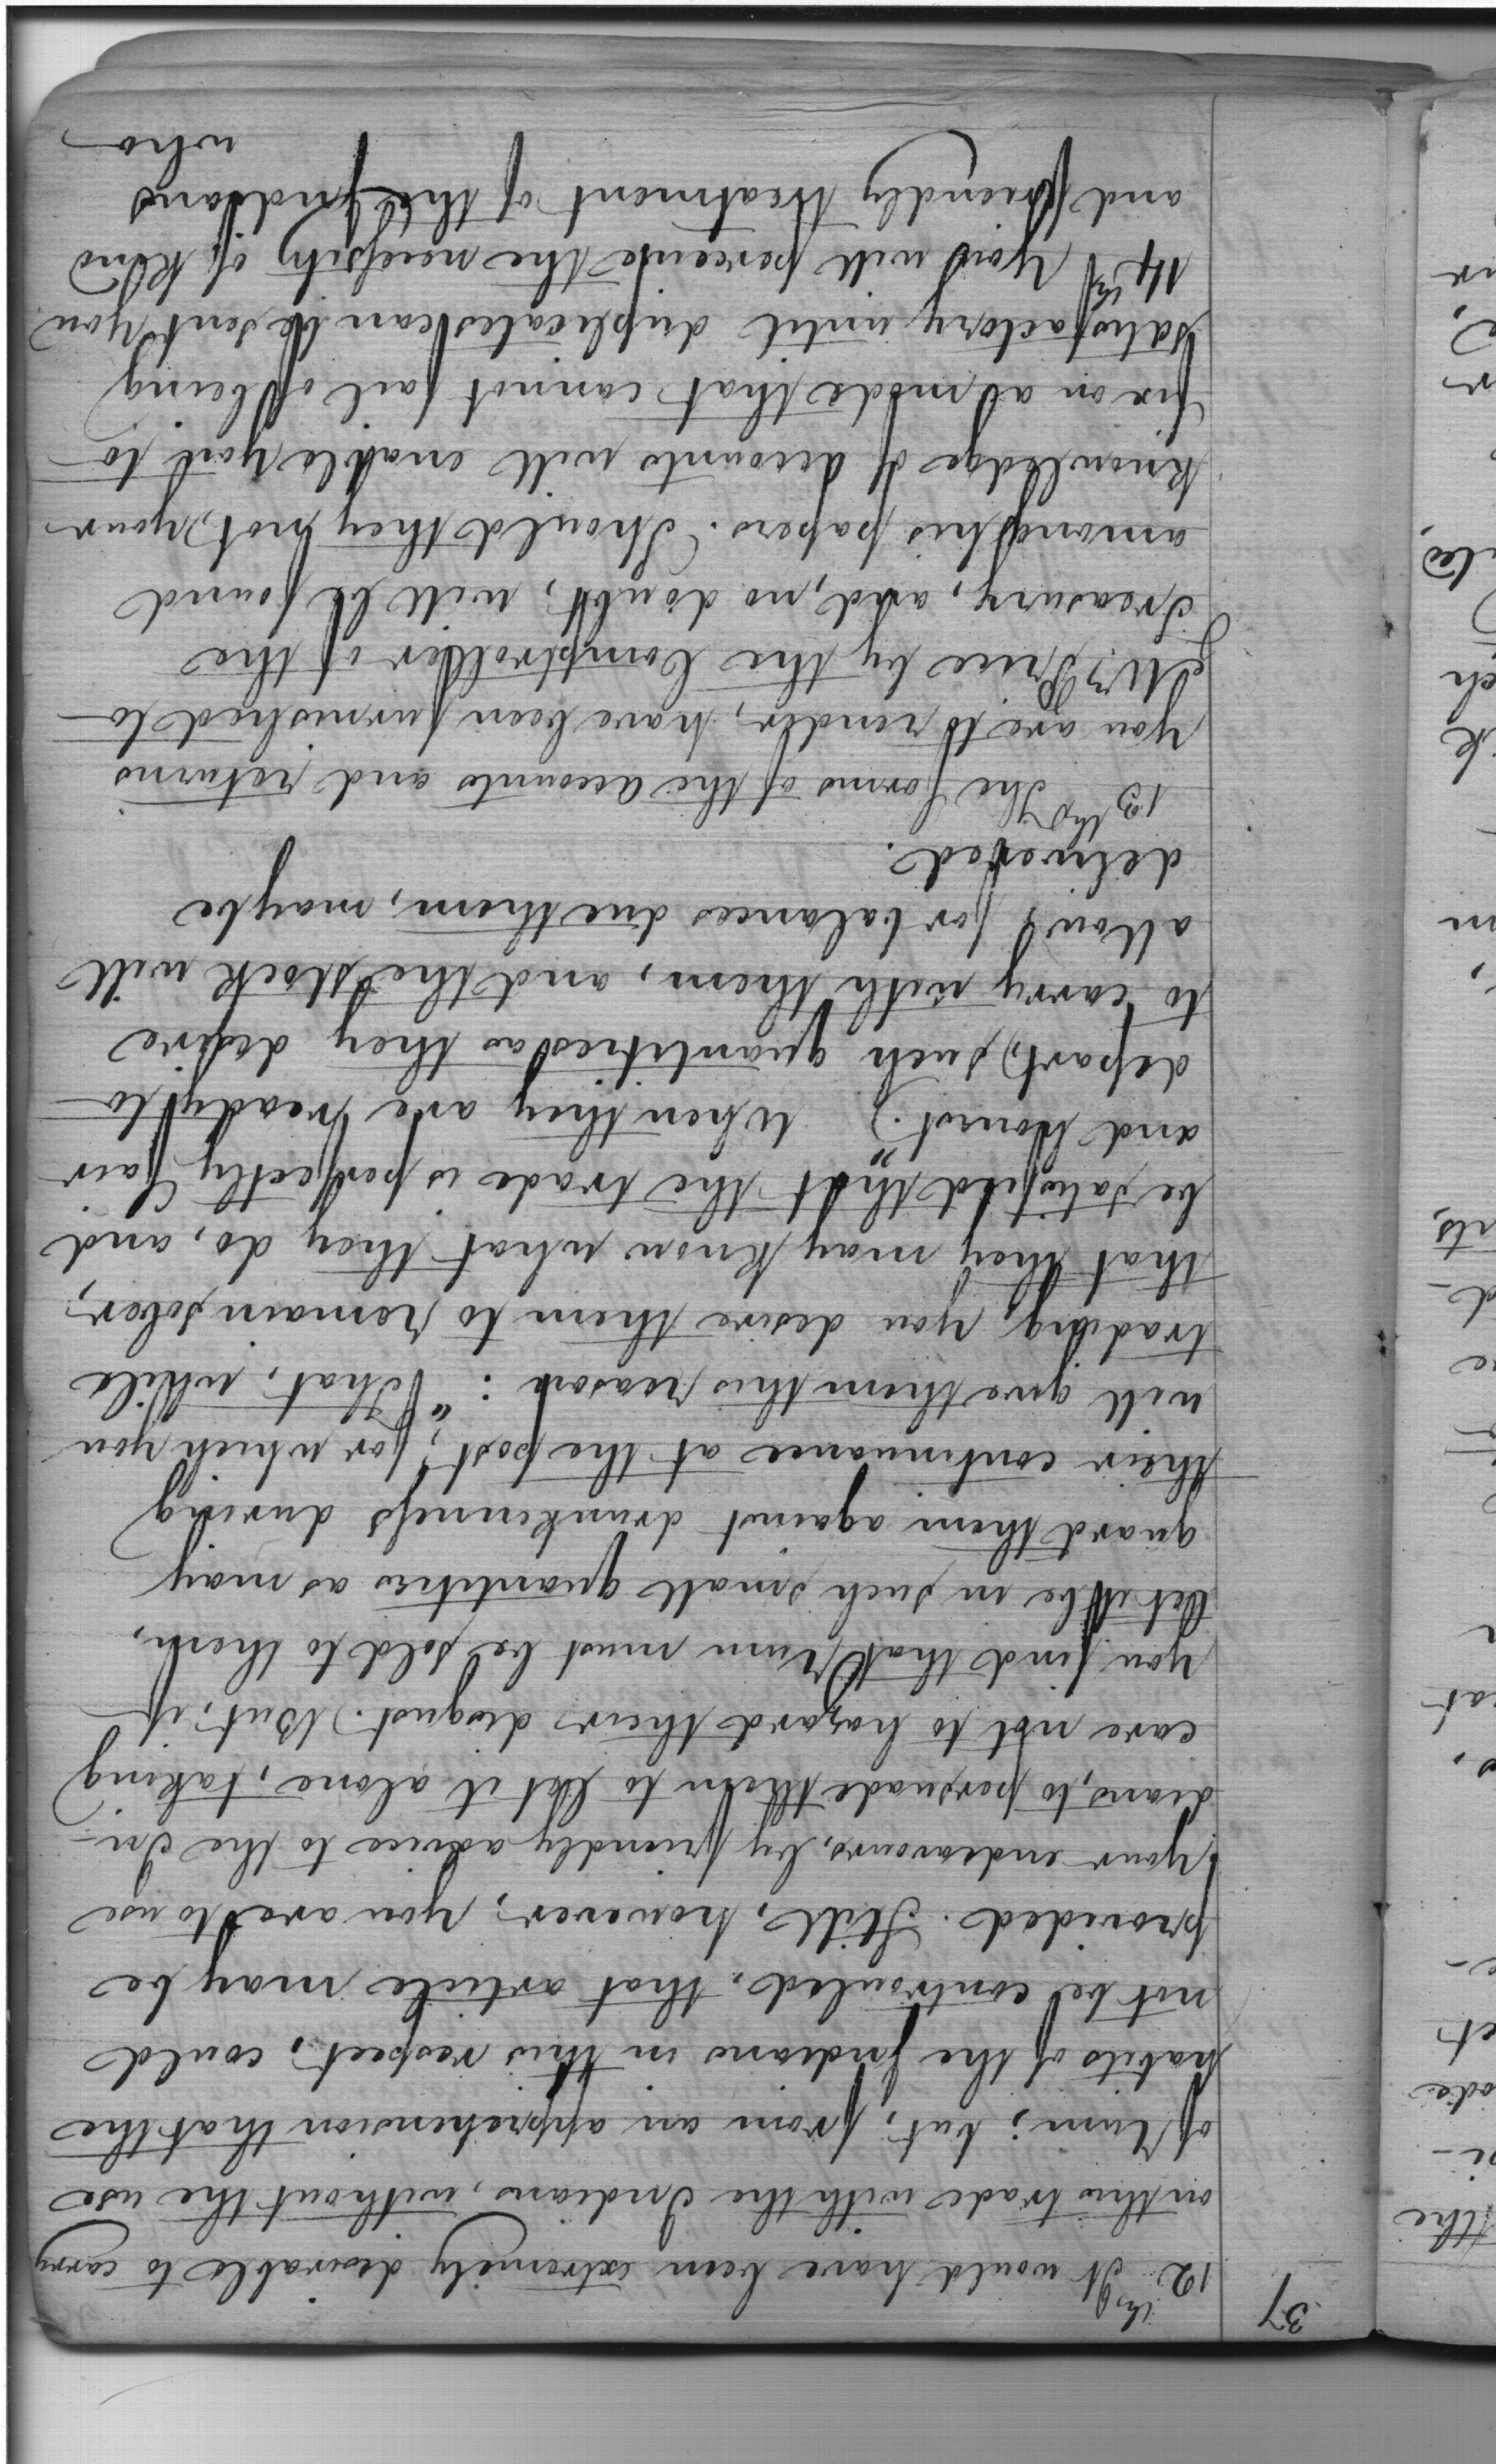 37
12th It would have been extremely desirable to carry
on this trade with the Indians, without the use
of Rum; but, from an apprehension that the
habits of the Indians in this respect, could
not be controuled, that article may be
provided. Still, however, you are to use
your endeavours, by friendly advice to the In-
dians, to persuade them to let it alone, taking
care not to hazard their disgust. But, if
you find that Rum must be sold to them,
let it be in such small quantities as may
guard them against drunkenness during
their continuance at the post; for which you
will give them this reason: "That, while
trading, you desire them to remain sober,
that they may know what they do, and
be satisfied that the trade is perfectly fair
and honest." When they are ready to
depart, such quantities as they desire
to carry with them, and the stock will
allow for balances due them, may be
delivered.
13th The forms of the accounts and returns
you are to render, have been furnished to
Mr Price by the Comptroller of the
Treasury, and, no doubt, will be found
among his papers. Should they not, your
knowledge of accounts will enable you to
fix on a mode that cannot fail of being
satisfactory until duplicates can be sent you
14th You will perceive the necessity of kind
and friendly treatment of the Indians
who